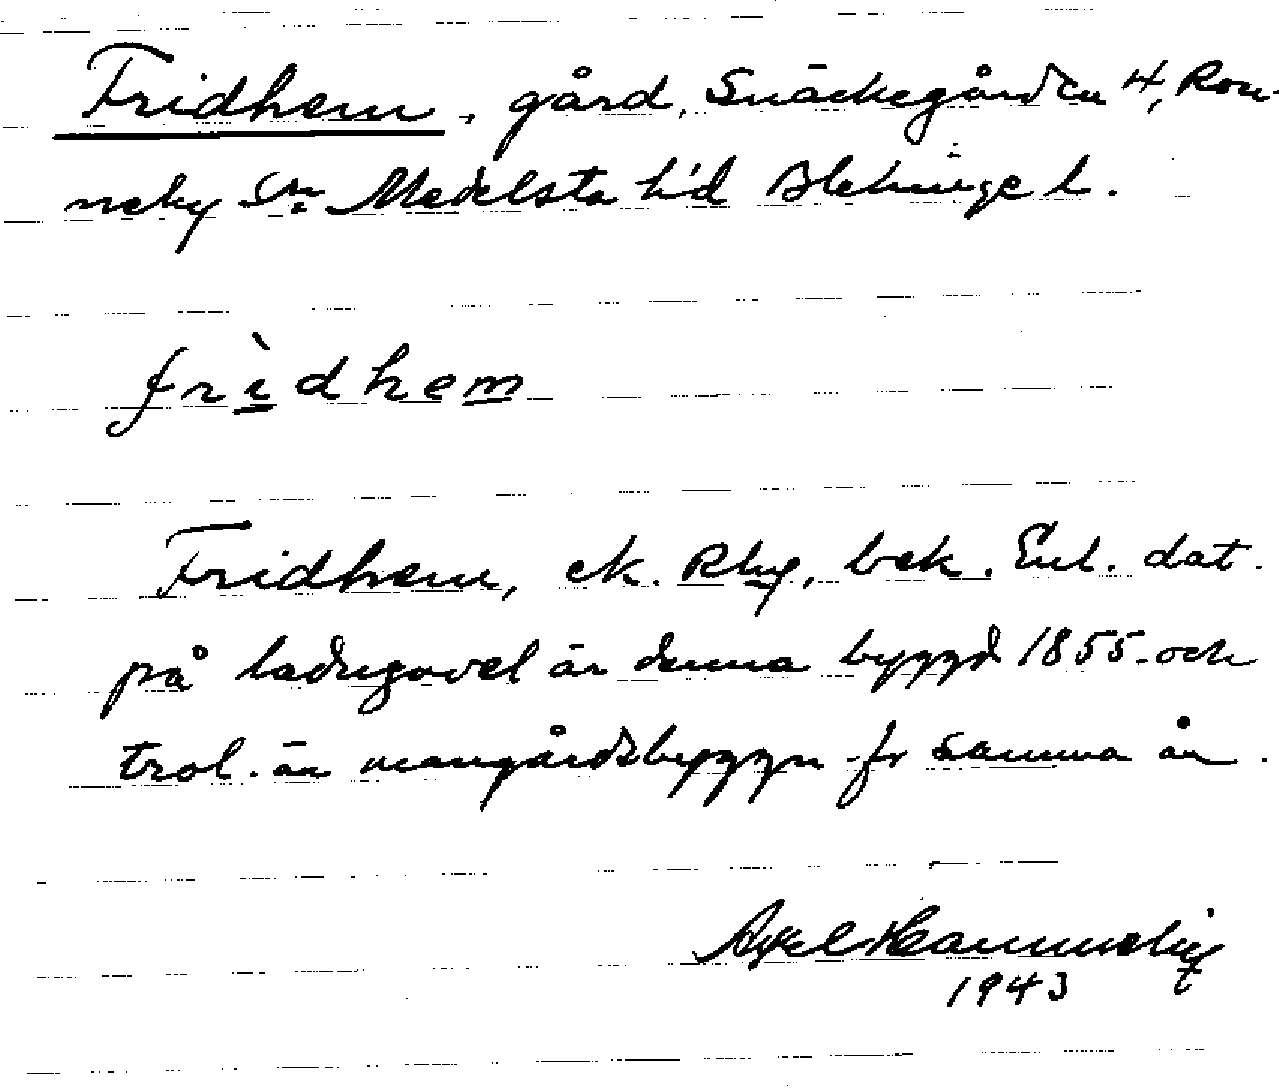 Fridhem, gård, Snäckegården 4, Ron-
neby Sn Medelsta hd Blekinge l.
frìdhem
Fridhem, ek. Rby, bek. Enl. dat.
på ladugavel är denna byggd 1855 och
trol. är mangårdsbyggn fr samma år.
Axel
1943